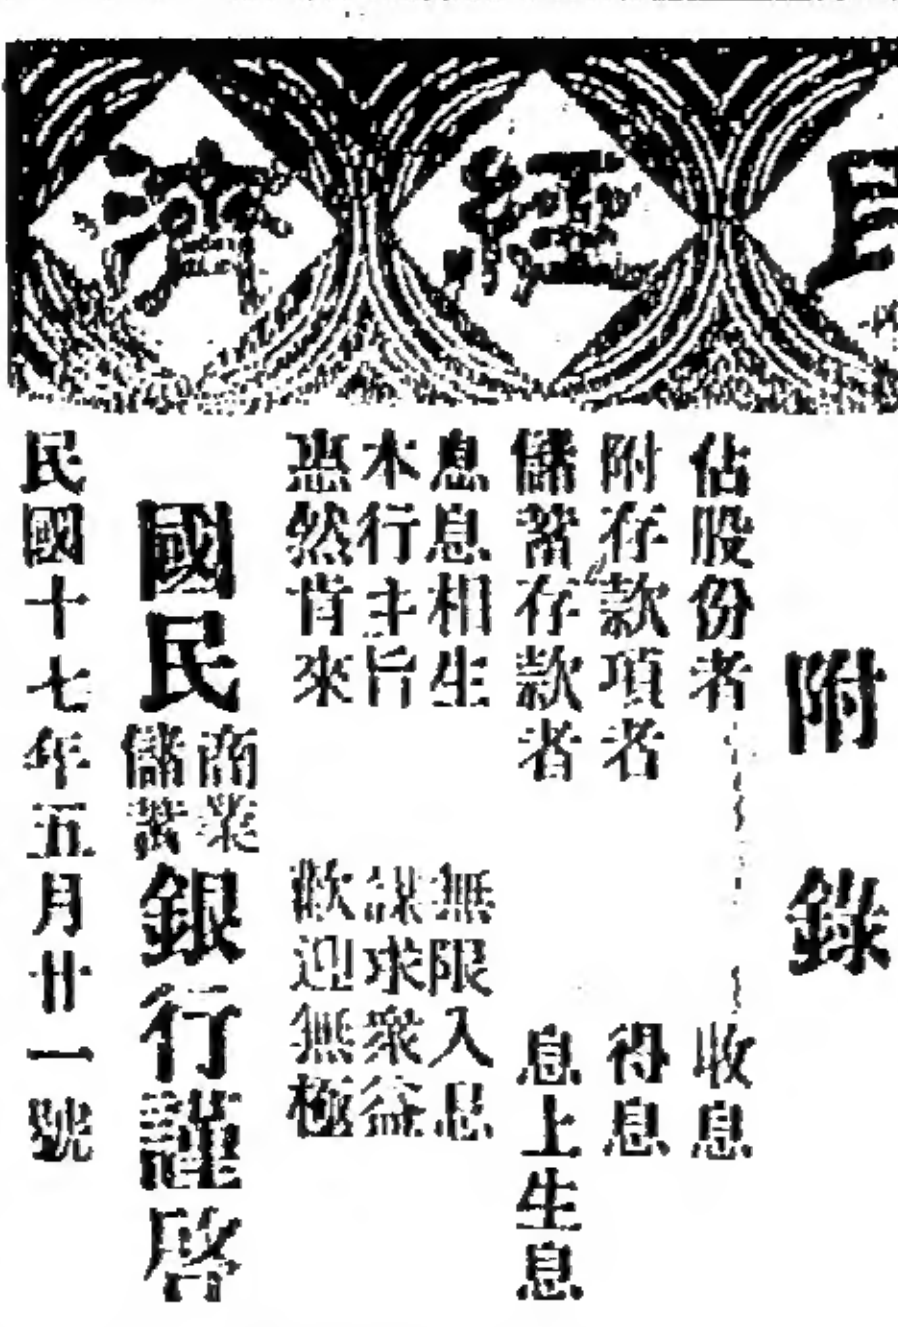 經濟
附錄
佔股份者 收息
附存款項者 得息
儲蓄存款者 息上生息
息息相生 無限入息
本行主旨 謀求衆益
惠然肯來 歡迎無極
國民商業儲蓄銀行謹啓
民國十七年五月廿一號